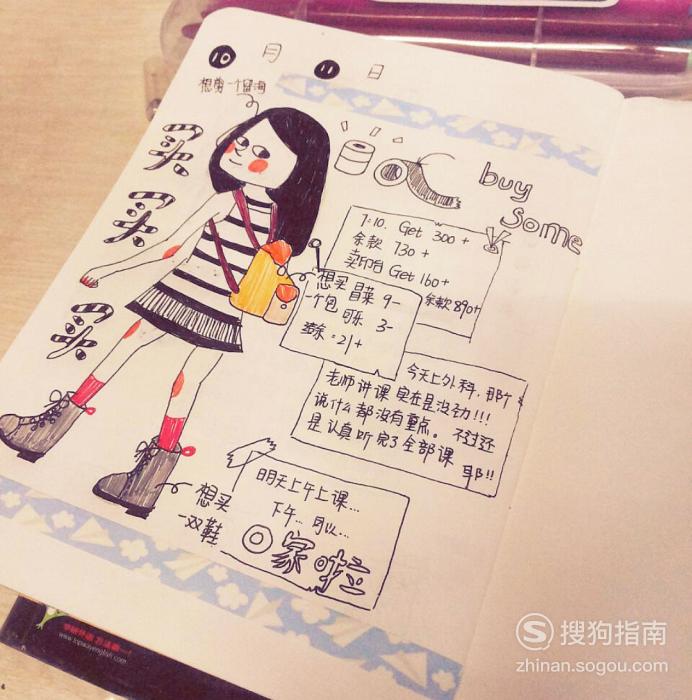 10 月 11 日
想剪一个留海
买
买
买
buy
some
7:10. Get 300+
余款 730+
卖印台 Get 160+
余款 890+
想买
一个包
冒菜 9-
可乐 3-
今天上外科，那个
老师讲课实在是没劲!!!
说什么都没有重点。不过还
是认真听完了全部课 耶!!
明天上午上课...
下午...可以...
回家啦
想买
一双鞋
www.topwayenglish.com
搜狗指南
zhinan.sogou.com